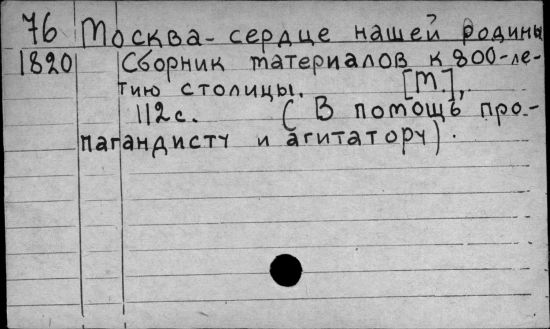 76 Москва - сердце нашей родины
1820 Сборник материалов к 800-ле-
тию столицы. [М.],
112с. (В помощь про-
пагандисту и агитатору).